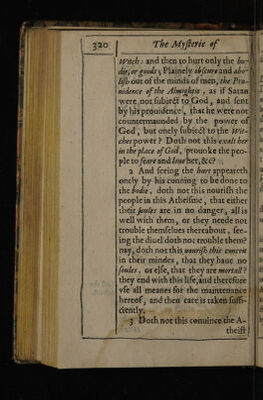 320 The Mysterie of
Witch: and then to hurt only the bo-
die, or goods; Plainely obscure and abo-
lish out of the minds of men, the Pro-
uidence of the Almightie, as if Satan
were not subiect to God, and sent
by his prouidence, that he were not
countermaunded by the power of
God, but onely subiect to the Wit-
ches power? Doth not this exalt her
in the place of God, prouoke the peo-
ple to feare and loue her, &c?
2 And seeing the hurt appeareth
onely by his cunning to be done to
the bodie, doth not this nourish the
people in this Atheisme, that either
their soules are in no danger, all is
well with them, or they neede not
trouble themselues thereabout, see-
ing the diuel doth not trouble them?
nay, doth not this nourish this conceit
in their mindes, that they haue no
soules, or else, that they are mortall?
they end with this life, and therefore
vse all meanes for the maintenance
hereof, and then care is taken suffi-
ciently.
3 Doth not this conuince the A-
theist